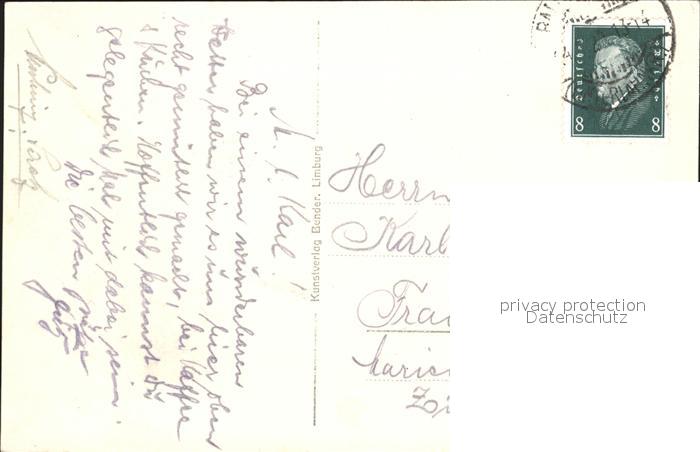 M. l. Karl!
Bei einem wunderbaren
Wetter haben wir es uns hier oben
recht gemütlich gemacht, bei Kaffee
& Kuchen. Hoffentlich kannst Du
gelegentlich mal mit dabei sein.
Die besten Grüße
Kunstverlag Bender, Limburg
Herrn
Karl
Fra
Marien
Deutsches Reich
8 8
privacy protection
Datenschutz